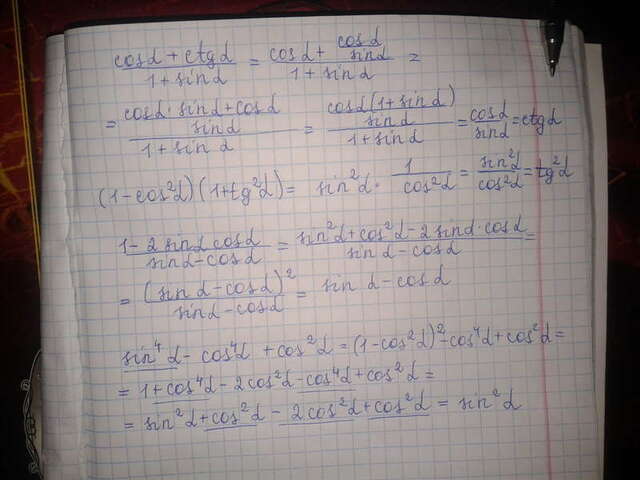 (cosα + ctgα)/(1 + sinα) = (cosα + cosα/sinα)/(1 + sinα) =
= ((cosα · sinα + cosα)/sinα)/(1 + sinα) = ((cosα(1 + sinα))/sinα)/(1 + sinα) = cosα/sinα = ctgα
(1 - cos²α)(1 + tg²α) = sin²α · 1/cos²α = sin²α/cos²α = tg²α
(1 - 2 sinα cosα)/(sinα - cosα) = (sin²α + cos²α - 2 sinα · cosα)/(sinα - cosα) =
= (sinα - cosα)²/(sinα - cosα) = sinα - cosα
sin⁴α - cos⁴α + cos²α = (1 - cos²α)² - cos⁴α + cos²α =
= 1 + cos⁴α - 2cos²α - cos⁴α + cos²α =
= sin²α + cos²α - 2cos²α + cos²α = sin²α